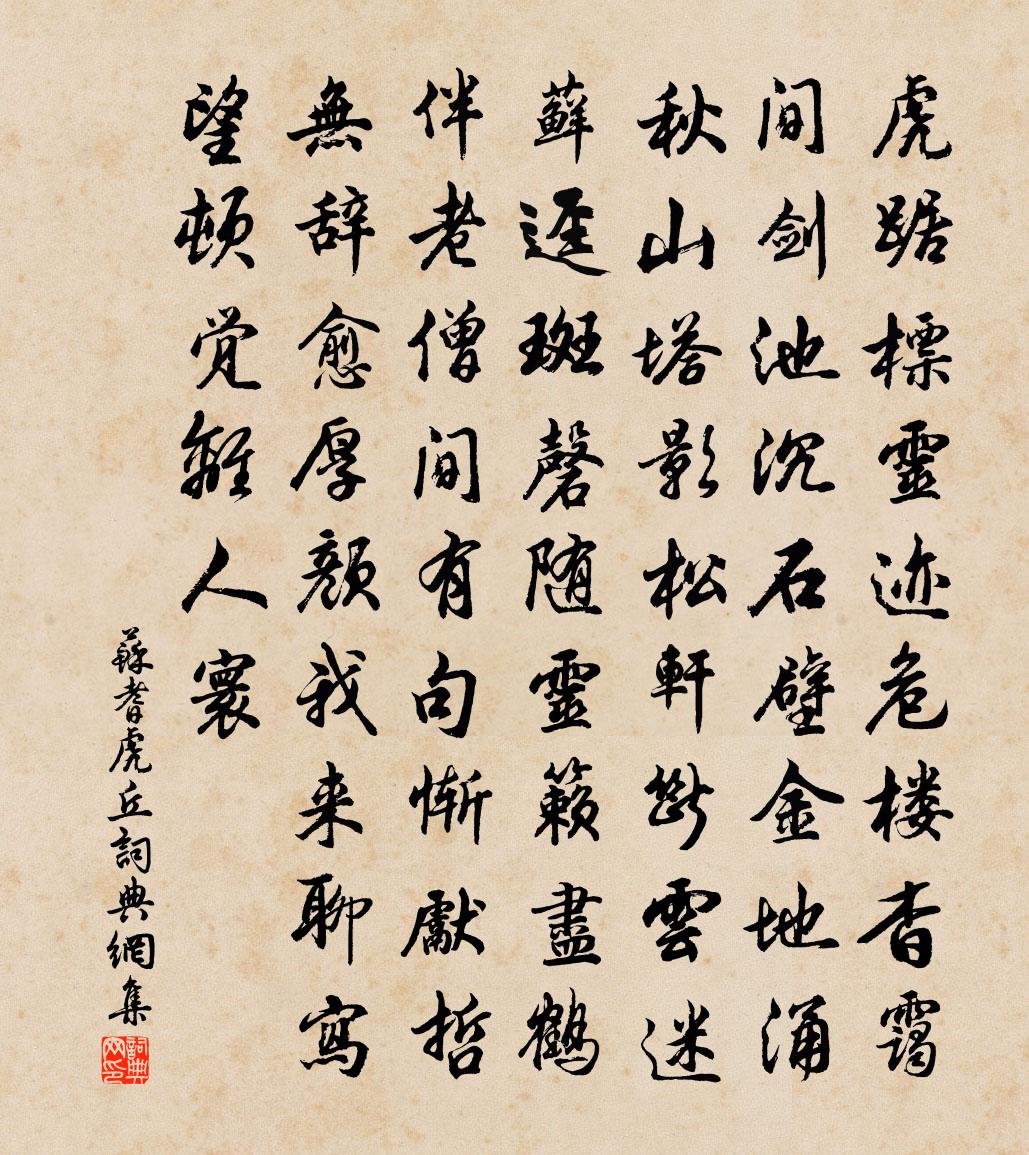 虎踞標靈迹危楼杳靄
间剑池沉石壁金地涌
秋山塔影松軒斷雲迷
蘚逕斑磬随靈籟盡鶴
伴老僧间有句惭獻哲
無辞愈厚顔我来聊寫
望頓觉離人寰
蘇耆虎丘詞典網集
詞典网印